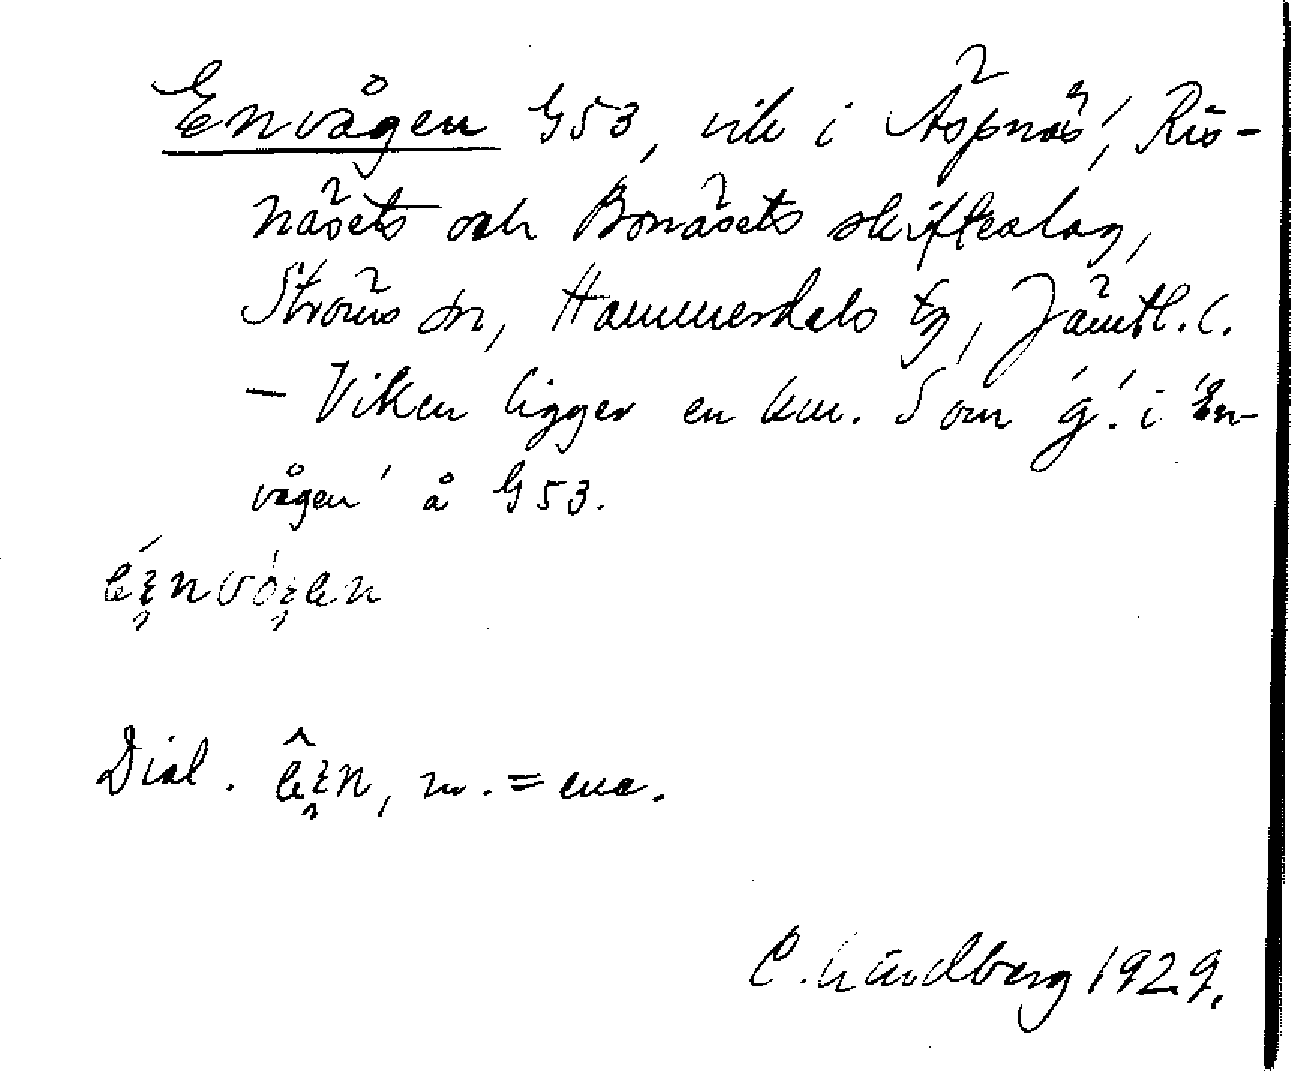 Envågen G53, vik i Äspnäs, Ris-
näsets och Bonäsets skifteslag,
Ströms sn, Hammerdals tg, Jämtl. l.
– Viken ligger en km. S om 'g.' i 'En-
vågen' å G53.
Dial. , m. = ene.
C. Lindberg 1929.